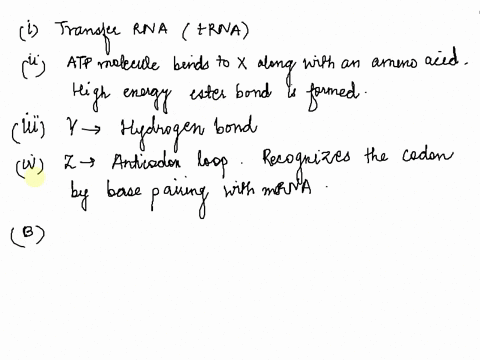 (i) Transfer RNA (tRNA)
(ii) ATP molecule binds to X along with an amino acid.
High energy ester bond is formed.
(iii) Y → Hydrogen bond
(iv) Z → Anticodon loop. Recognizes the codon
by base pairing with mRNA.
(B)